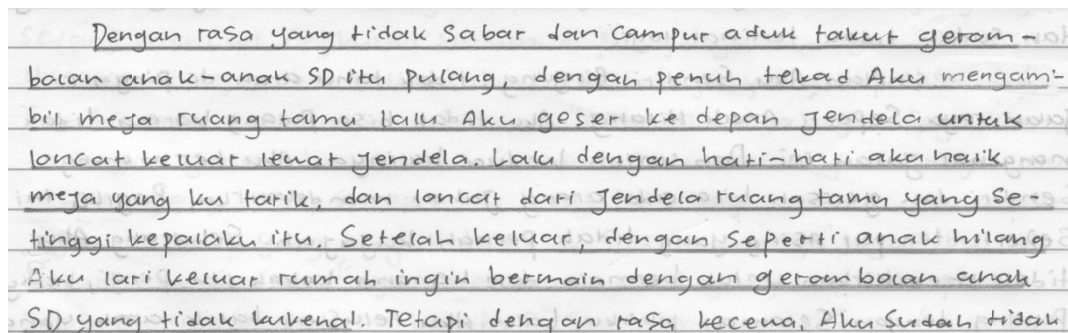 Dengan rasa yang tidak sabar dan campur aduk takut gerom-
bolan anak-anak SD itu pulang, dengan penuh tekad Aku mengam-
bil meja ruang tamu lalu Aku geser ke depan jendela untuk
loncat keluar lewat jendela. Lalu dengan hati-hati aku naik
meja yang ku tarik, dan loncat dari jendela ruang tamu yang se-
tinggi kepalaku itu. Setelah keluar, dengan seperti anak hilang
Aku lari keluar rumah ingin bermain dengan gerombolan anak
SD yang tidak kukenal. Tetapi dengan rasa kecewa, Aku sudah tidak